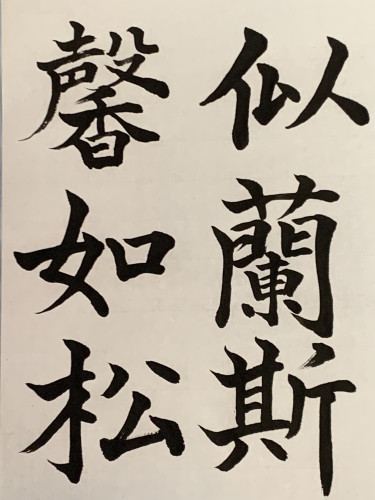 似蘭斯
馨如松